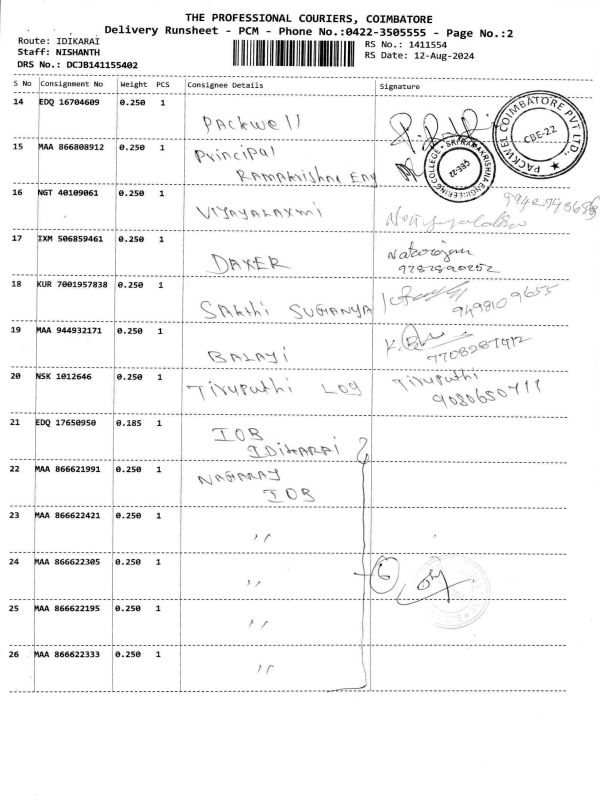 THE PROFESSIONAL COURIERS, COIMBATORE
Delivery Runsheet - PCM - Phone No.:0422-3505555 - Page No.:2
Route: IDIKARAI
Staff: NISHANTH
DRS No.: DCJB141155402
RS No.: 1411554
RS Date: 12-Aug-2024
S No Consignment No Weight PCS Consignee Details Signature
14 EDQ 16704609 0.250 1 Packwell
PACKWEL COIMBATORE PVT LTD., ★ CBE-22
15 MAA 866808912 0.250 1 Principal
Ramakrishna Eng
SRI RAMAKRISHNA ENGINEERING COLLEGE • CBE-22
16 NGT 40109061 0.250 1 VIJAYALAXMI
17 IXM 506859461 0.250 1 DAXER Natarajan
9787890252
18 KUR 7001957838 0.250 1 SAKthi SUGANYA 9498109655
19 MAA 944932171 0.250 1 BALAJi
7708287412
20 NSK 1012646 0.250 1 Tirupathi LOg Tirupathi
9080650711
21 EDQ 17650950 0.185 1 IOB
IDIKARAI
22 MAA 866621991 0.250 1 NAGARAJ
IOB
23 MAA 866622421 0.250 1 ,,
24 MAA 866622305 0.250 1 ,, 6
25 MAA 866622195 0.250 1 ,,
26 MAA 866622333 0.250 1 ,,